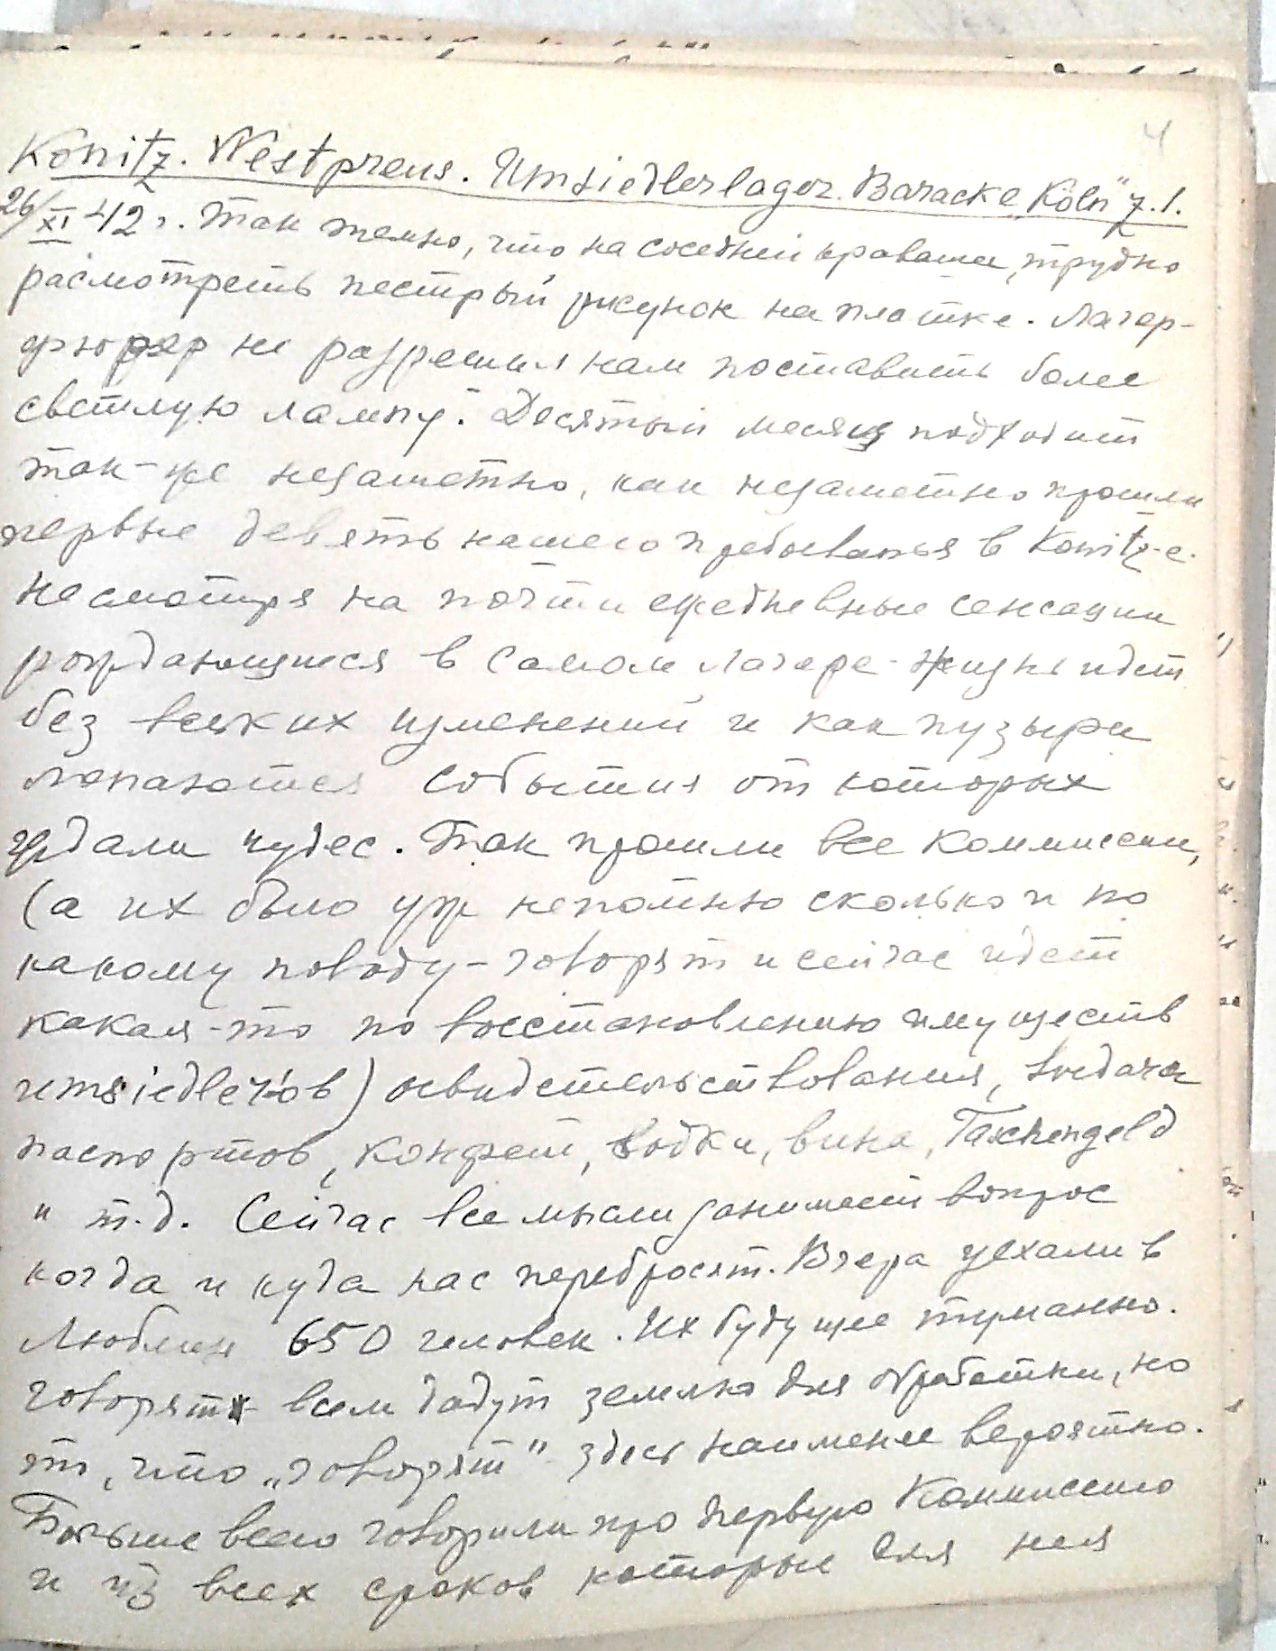 4
Konitz. Westpreus. Umsiedlerlager. Baracke „Köln" Z.1.
26/XI 42 г. Так темно, что на соседней кровати, трудно
расмотреть пестрый рисунок на платке. Лагер-
фюрер не разрешил нам поставить более
светлую лампу. Десятый месяц подходит
так-же незаметно, как незаметно прошли
первые девять нашего пребыванья в Konitz-е.
Несмотря на почти ежедневные сенсации
рождающиеся в самом лагере - жизнь идет
без всяких изменений и как пузыри
лопаются события от которых
ждали чудес. Так прошли все Коммиссии,
(а их было уж непомню сколько и по
какому поводу - говорят и сейчас идет
какая-то по восстановлению имуществ
umsiedler'ов) освидетельствования, выдача
паспортов, конфет, водки, вина, Taschengeld
и т.д. Сейчас все мысли занимает вопрос
когда и куда нас перебросят. Вчера уехали в
Люблин 650 человек. Их будущее туманно.
Говорят всем дадут землю для обработки, но
то, что „говорят" здесь наименее вероятно.
Больше всего говорили про первую Коммиссию
и из всех сроков которые для нея